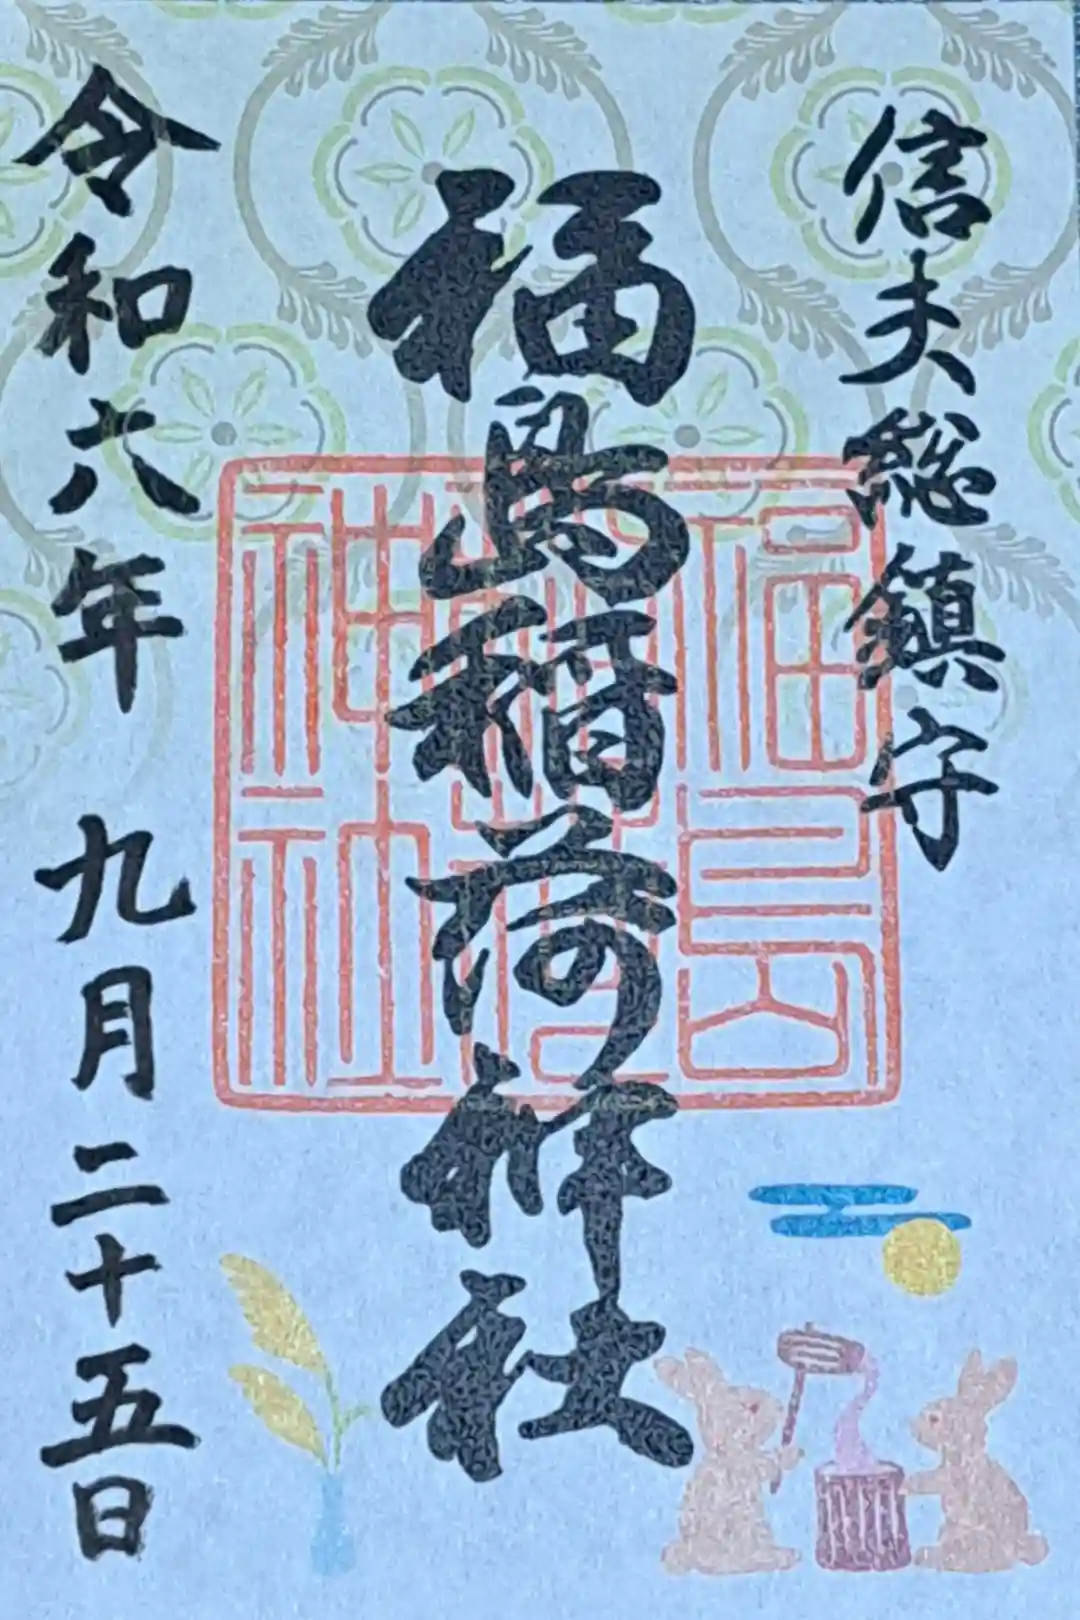 信夫総鎮守
福島稲荷神社
福島稲荷神社
令和六年 九月二十五日